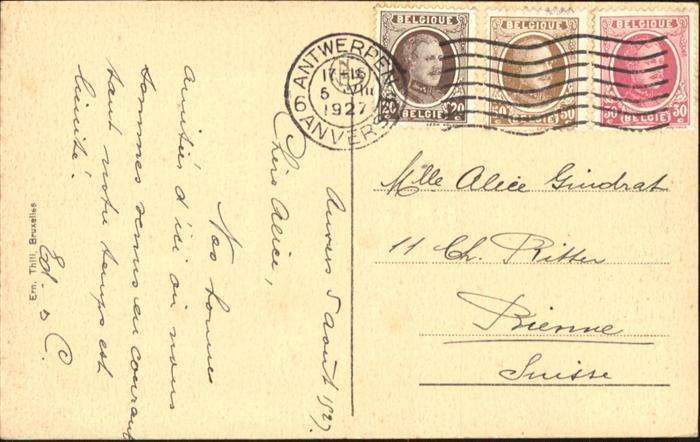 BELGIQUE
20 c 20 c
BELGIË
BELGIQUE
50 50 c
BELGIË
BELGIQUE
30 c 30 c
BELGIË
ANTWERPEN
6
17-18
5 VIII
1927
ANVERS
Anvers 5 août 1927
Chère Alice,
Nos bonnes
amitiés d'ici où nous
sommes venus en courant
tant notre temps est
limité.
Ed. & C.
Ern. Thill, Bruxelles
Mlle Alice Gindrat
11 Ch. Ritter
Bienne
Suisse